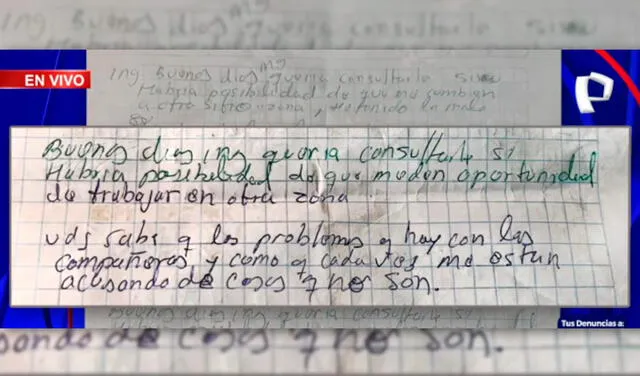 EN VIVO
Ing Buenos dias queria consultarle
Habria posibilidad de que me cambien
a otro sitio o zona,
Buenos dias ing queria consultarle si
Habria posibilidad de que me den oportunidad
de trabajar en otra zona
uds sabe q los problemas q hay con las
compañeras y como q cada ves me estan
acusando de cosas q no son.
Tus Denuncias a: